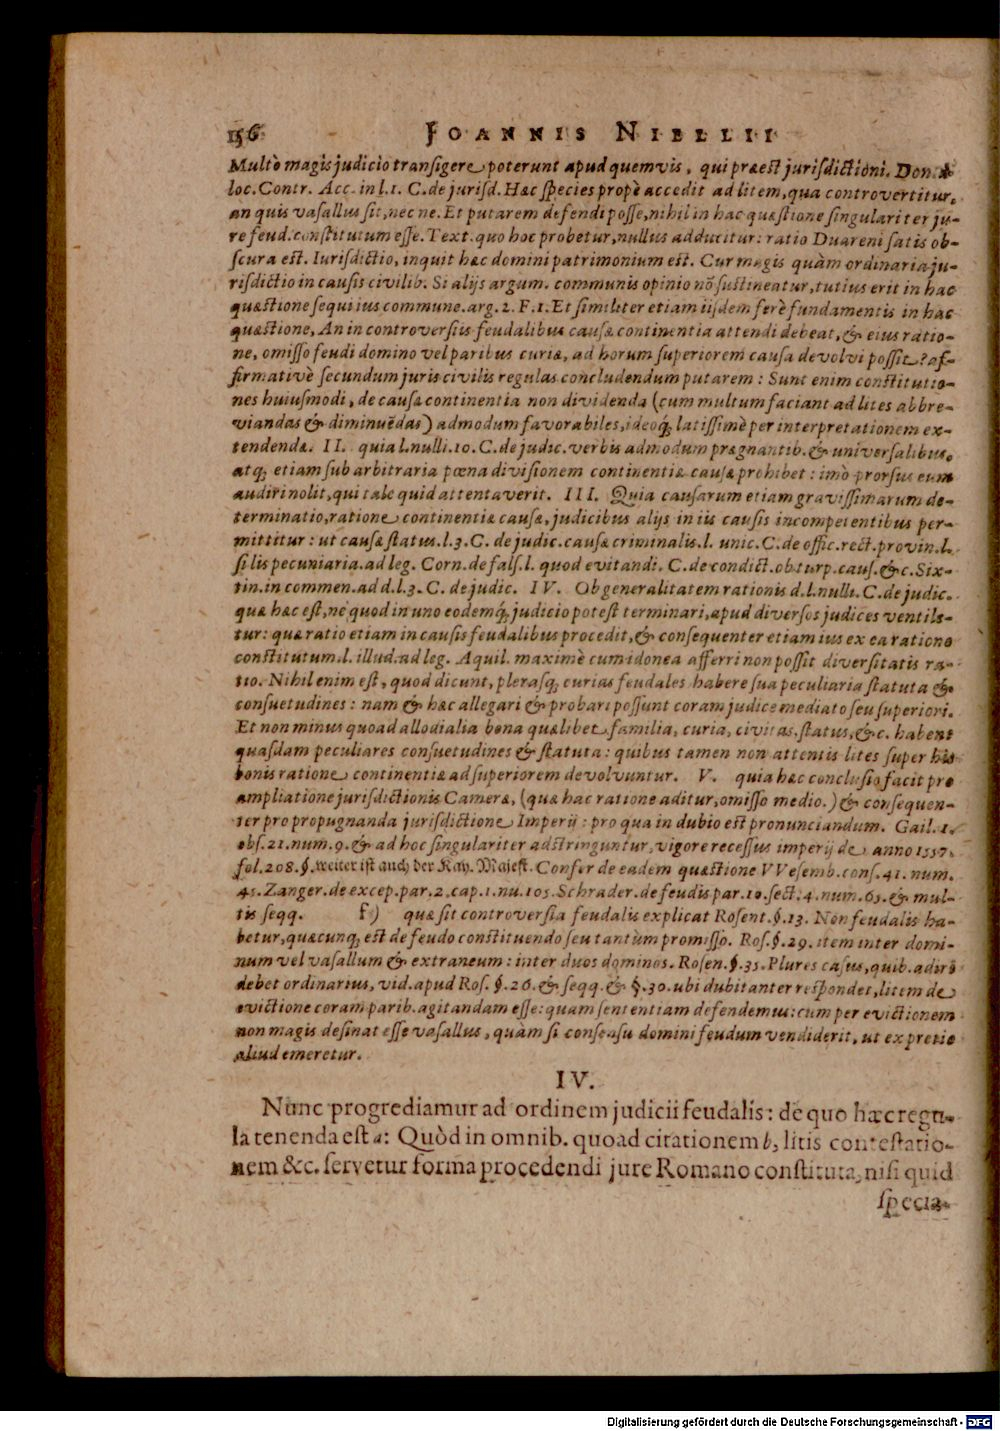 156 JOANNIS NIELLII
Multò magis judicio transigere poterunt apud quemvis, qui præest jurisdictioni. Don. d.
loc. Contr. Acc. in l. 1. C. de jurisd. Hæc species propè accedit ad litem, qua controvertitur,
an quis vasallus sit, nec ne. Et putarem defendi posse, nihil in hac quæstione singulariter ju-
re feud. constitutum esse. Text. quo hoc probetur, nullus adducitur: ratio Duareni satis ob-
scura est. Iurisdictio, inquit hæc domini patrimonium est. Cur magis quàm ordinaria ju-
risdictio in causis civilib. Si alijs argum. communis opinio nõ sustineatur, tutius erit in hac
quæstione sequi ius commune. arg. 2. F. 1. Et similiter etiam iisdem ferè fundamentis in hac
quæstione, An in controversiis feudalibus causæ continentia attendi debeat, & eius ratio-
ne, omisso feudi domino vel paribus curiæ, ad horum superiorem causa devolvi possit? af-
firmativè secundum juris civilis regulas concludendum putarem: Sunt enim constitutio-
nes huiusmodi, de causæ continentia non dividenda (cum multum faciant ad lites abbre-
viandas & diminuẽdas) admodum favorabiles, ideoq; latissimè per interpretationem ex-
tendendæ. II. quia l. nulli. 10. C. de judic. verbis admodum prægnantib. & universalibus,
atq; etiam sub arbitraria pœna divisionem continentiæ causæ prohibet: imò prorsus eum
audiri nolit, qui tale quid attentaverit. III. Quia causarum etiam gravissimarum de-
terminatio, ratione continentiæ causæ, judicibus alijs in iis causis incompetentibus per-
mittitur: ut causæ status. l. 3. C. de judic. causæ criminalis. l. unic. C. de offic. rect. provin. l.
si lis pecuniaria. ad leg. Corn. de fals. l. quod evitandi. C. de condict. ob turp. caus. & c. Six-
tin. in commen. ad d. l. 3. C. de judic. IV. Ob generalitatem rationis d. l. nulli. C. de judic.
quæ hæc est, ne quod in uno eodemq; judicio potest terminari, apud diversos judices ventile-
tur: quæ ratio etiam in causis feudalibus procedit, & consequenter etiam ius ex ea ratione
constitutum. l. illud. ad leg. Aquil. maximè cum idonea afferri non possit diversitatis ra-
tio. Nihil enim est, quod dicunt, plerasq; curias feudales habere sua peculiaria statuta &
consuetudines: nam & hæc allegari & probari possunt coram judice mediato seu superiori.
Et non minus quoad allodialia bona quælibet familia, curia, civitas, status, &c. habent
quasdam peculiares consuetudines & statuta: quibus tamen non attentis lites super his
bonis ratione continentiæ ad superiorem devolvuntur. V. quia hæc conclusio facit pro
ampliatione jurisdictionis Cameræ, (quæ hac ratione aditur, omisso medio.) & consequen-
ter pro propugnanda jurisdictione Imperij: pro qua in dubio est pronunciandum. Gail. 1.
obs. 21. num. 9. & ad hoc singulariter adstringuntur, vigore recessus imperij de anno 1557.
fol. 208. §. weiter ist auch der Kay. Majest. Confer de eadem quæstione VVesemb. cons. 41. num.
45. Zanger. de excep. par. 2. cap. 1. nu. 105. Schrader. de feudis par. 10. sect. 4. num. 63. & mul-
tis seqq. f) quæ sit controversia feudalis explicat Rosent. §. 13. Non feudalis ha-
betur, quæcunq; est de feudo constituendo seu tantùm promisso. Ros. §. 29. item inter domi-
num vel vasallum & extraneum: inter duos dominos. Rosen. §. 35. Plures casus, quib. adiri
debet ordinarius, vid. apud Ros. §. 26. & seqq. & §. 30. ubi dubitanter respondet, litem de
evictione coram parib. agitandam esse: quam sententiam defendemus: cum per evictionem
non magis desinat esse vasallus, quàm si consensu domini feudum vendiderit, ut ex pretio
aliud emeretur.
IV.
Nunc progrediamur ad ordinem judicii feudalis: de quo hæc regu-
la tenenda est a: Quòd in omnib. quoad citationem b, litis contestatio-
nem &c. servetur forma procedendi jure Romano constituta, nisi quid
specia-
Digitalisierung gefördert durch die Deutsche Forschungsgemeinschaft - DFG